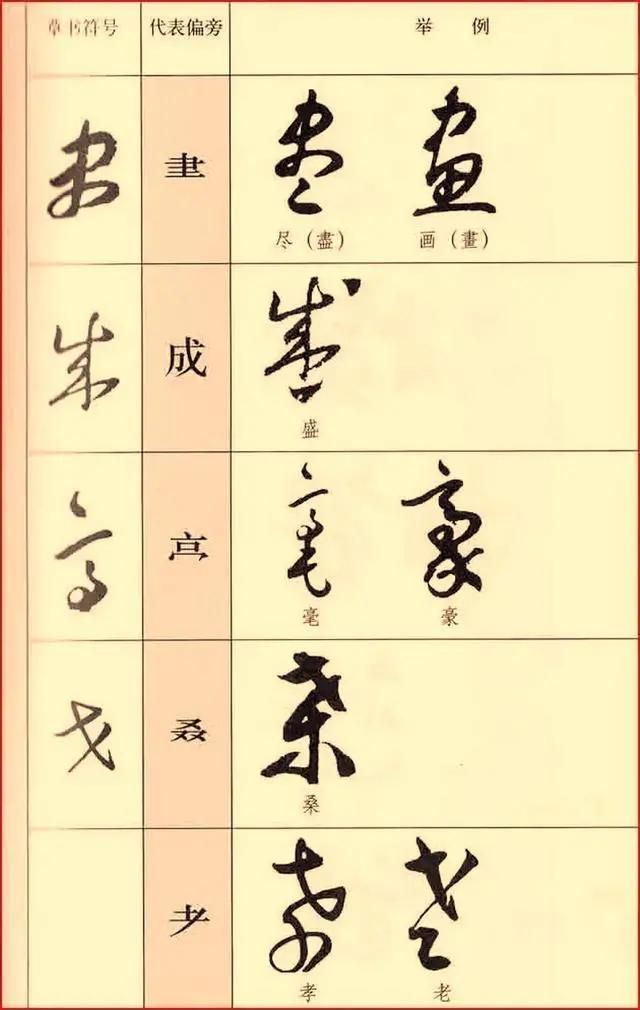 草书符号 代表偏旁 举例
⺻ 尽（盡） 画（畫）
成 盛
亯 毫 豪
叒 桑
耂 孝 老